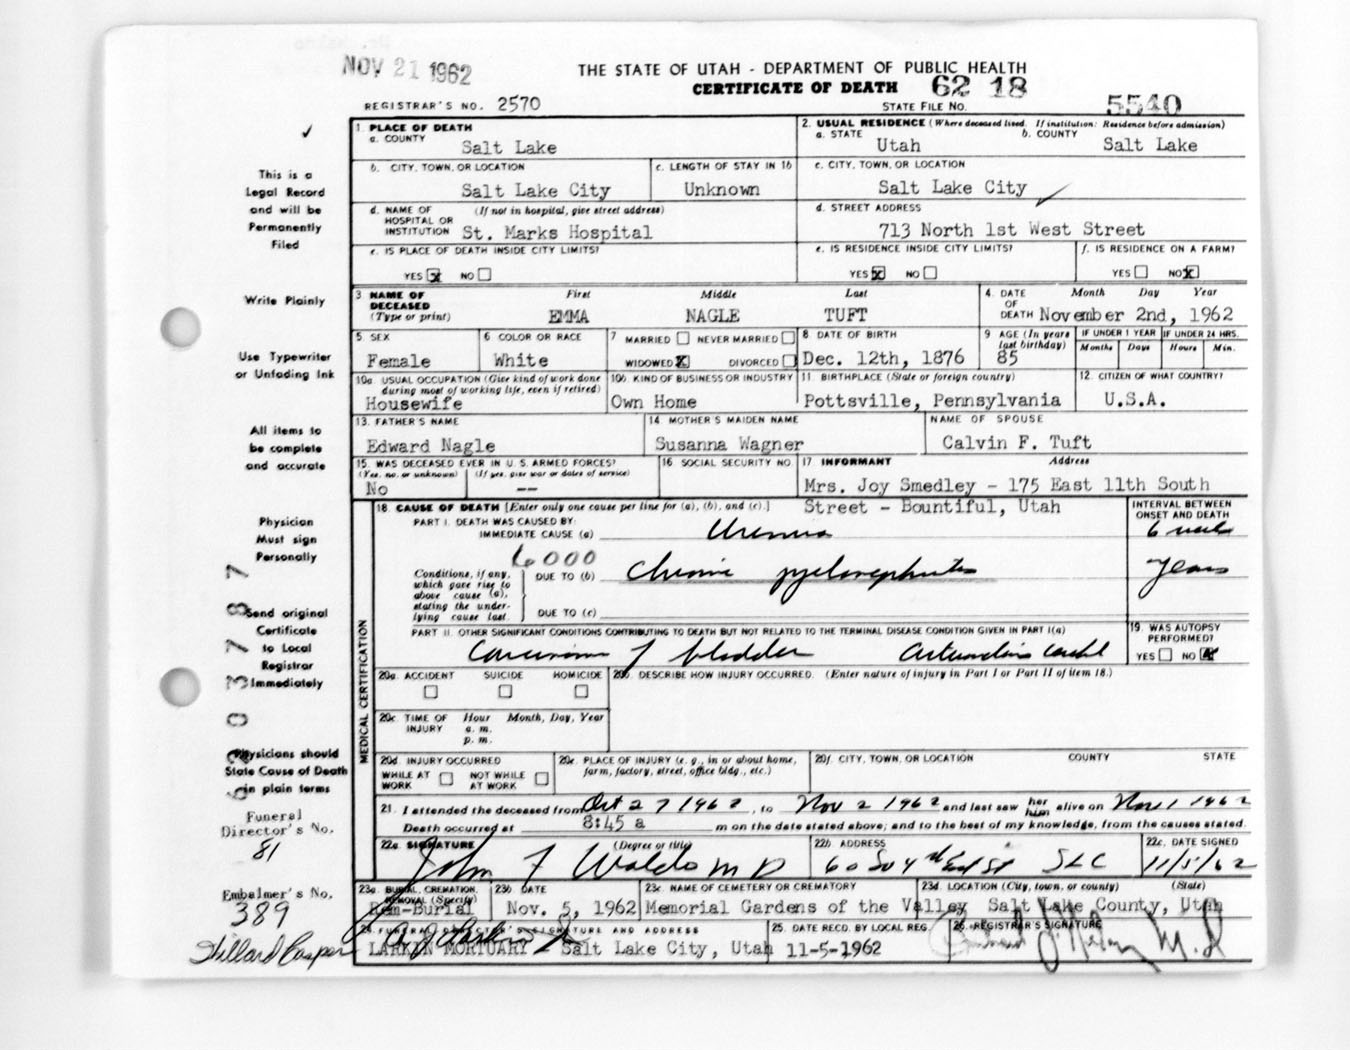 NOV 21 1962
THE STATE OF UTAH - DEPARTMENT OF PUBLIC HEALTH
CERTIFICATE OF DEATH 62 18
REGISTRAR'S NO. 2570
STATE FILE NO. 5540
1. PLACE OF DEATH
a. COUNTY
Salt Lake
2. USUAL RESIDENCE (Where deceased lived. If institution: Residence before admission)
a. STATE
Utah
b. COUNTY
Salt Lake
b. CITY, TOWN, OR LOCATION
Salt Lake City
c. LENGTH OF STAY IN 1b
Unknown
c. CITY, TOWN, OR LOCATION
Salt Lake City
d. NAME OF HOSPITAL OR INSTITUTION
(If not in hospital, give street address)
St. Marks Hospital
d. STREET ADDRESS
713 North 1st West Street
e. IS PLACE OF DEATH INSIDE CITY LIMITS?
YES X NO
e. IS RESIDENCE INSIDE CITY LIMITS?
YES X NO
f. IS RESIDENCE ON A FARM?
YES NO X
3 NAME OF DECEASED (Type or print)
First Middle Last
EMMA NAGLE TUFT
4. DATE OF DEATH
Month Day Year
November 2nd, 1962
5. SEX
Female
6 COLOR OR RACE
White
7 MARRIED NEVER MARRIED
WIDOWED X DIVORCED
8 DATE OF BIRTH
Dec. 12th, 1876
9 AGE (In years last birthday)
85
IF UNDER 1 YEAR
Months Days
IF UNDER 24 HRS.
Hours Min.
10a. USUAL OCCUPATION (Give kind of work done during most of working life, even if retired)
Housewife
10b. KIND OF BUSINESS OR INDUSTRY
Own Home
11. BIRTHPLACE (State or foreign country)
Pottsville, Pennsylvania
12. CITIZEN OF WHAT COUNTRY?
U.S.A.
13. FATHER'S NAME
Edward Nagle
14 MOTHER'S MAIDEN NAME
Susanna Wagner
NAME OF SPOUSE
Calvin F. Tuft
15. WAS DECEASED EVER IN U. S. ARMED FORCES?
(Yes, no, or unknown) (If yes, give war or dates of service)
No --
16 SOCIAL SECURITY NO.
17 INFORMANT Address
Mrs. Joy Smedley - 175 East 11th South
Street - Bountiful, Utah
18. CAUSE OF DEATH [Enter only one cause per line for (a), (b), and (c).]
INTERVAL BETWEEN ONSET AND DEATH
PART I. DEATH WAS CAUSED BY:
IMMEDIATE CAUSE (a) Uremia
6000
Conditions, if any, which gave rise to above cause (a), stating the underlying cause last.
DUE TO (b) Chronic pyelonephritis years
DUE TO (c)
PART II. OTHER SIGNIFICANT CONDITIONS CONTRIBUTING TO DEATH BUT NOT RELATED TO THE TERMINAL DISEASE CONDITION GIVEN IN PART I(a)
Carcinoma of bladder
19. WAS AUTOPSY PERFORMED?
YES NO X
20a. ACCIDENT SUICIDE HOMICIDE
20b. DESCRIBE HOW INJURY OCCURRED. (Enter nature of injury in Part I or Part II of item 18.)
20c. TIME OF INJURY
Hour Month, Day, Year
a. m.
p. m.
20d. INJURY OCCURRED
WHILE AT WORK NOT WHILE AT WORK
20e. PLACE OF INJURY (e. g., in or about home, farm, factory, street, office bldg., etc.)
20f. CITY, TOWN, OR LOCATION COUNTY STATE
21. I attended the deceased from Oct 27 1962, to Nov 2 1962 and last saw her him alive on Nov 1 1962
Death occurred at 8:45 a m on the date stated above; and to the best of my knowledge, from the causes stated.
22a. SIGNATURE (Degree or title)
John F Waldo M D
22b. ADDRESS
SLC
22c. DATE SIGNED
11/5/62
23a. BURIAL, CREMATION, REMOVAL (Specify)
Rem-Burial
23b. DATE
Nov. 5, 1962
23c. NAME OF CEMETERY OR CREMATORY
Memorial Gardens of the Valley
23d. LOCATION (City, town, or county) (State)
Salt Lake County, Utah
24. FUNERAL DIRECTOR'S SIGNATURE AND ADDRESS
LARKIN MORTUARY Salt Lake City, Utah
25. DATE RECD. BY LOCAL REG.
11-5-1962
26. REGISTRAR'S SIGNATURE
MEDICAL CERTIFICATION
This is a
Legal Record
and will be
Permanently
Filed
Write Plainly
Use Typewriter
or Unfading Ink
All items to
be complete
and accurate
Physician
Must sign
Personally
Send original
Certificate
to Local
Registrar
Immediately
Physicians should
State Cause of Death
in plain terms
Funeral
Director's No.
81
Embalmer's No.
389
Hillard Casper